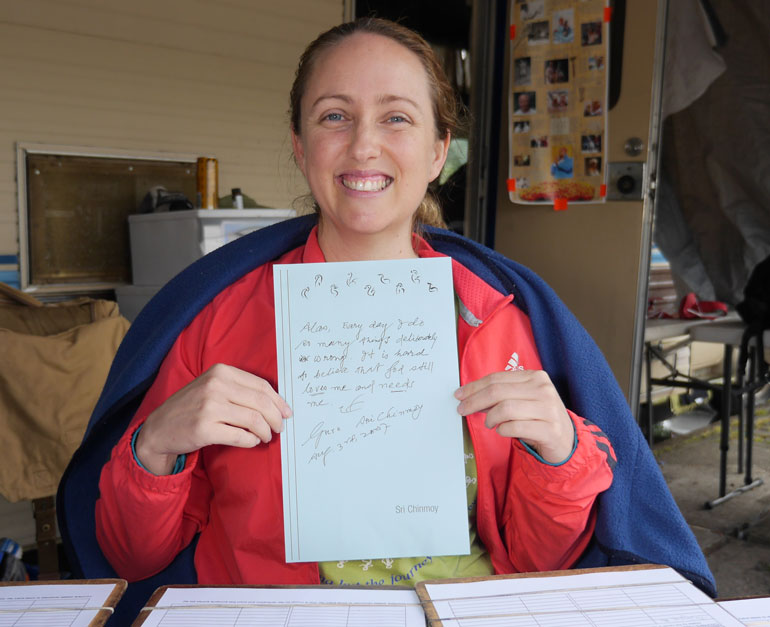 Alas, Every day I do
so many things deliberately
wrong. It is hard
to believe that God still
loves me and needs
me.
Guru Sri Chinmoy
Aug 3rd, 2007
Sri Chinmoy
but the journey